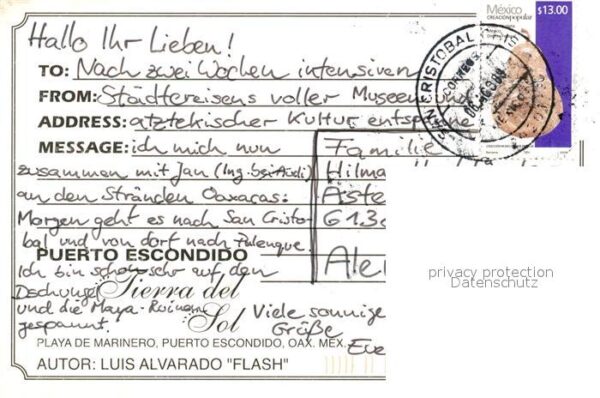 Hallo Ihr Lieben!
TO: Nach zwei Wochen intensiven
FROM: Städtereisens voller Museen und
ADDRESS: atztekischer Kultur entspanne
MESSAGE: ich mich nun
zusammen mit Jan (Ing. bei Audi)
an den Stränden Oaxacas.
Morgen geht es nach San Cristo-
bal und von dort nach Palenque.
PUERTO ESCONDIDO
Ich bin schon sehr auf den
Dschungel
Tierra del
und die Maya-Ruinen
Sol
gespannt.
Viele sonnige
Grüße
PLAYA DE MARINERO, PUERTO ESCONDIDO, OAX. MEX.
AUTOR: LUIS ALVARADO "FLASH"
Familie
Hilma
Aste
613
Ale
México
CREACIÓN popular
$13.00
SAN CRISTOBAL
CORREOS
privacy protection
Datenschutz